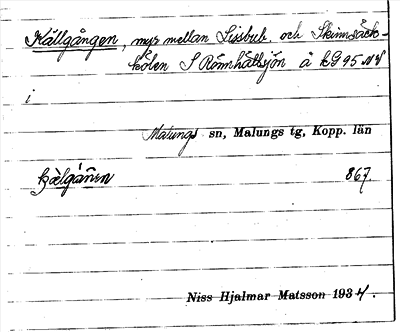 Källgången, myr mellan Lissbub. och Skinnsäck-
kölen S Rönnhåltsjön å k.G 95 NV
i
Malungs sn, Malungs tg, Kopp. län
867.
Niss Hjalmar Matsson 1934.